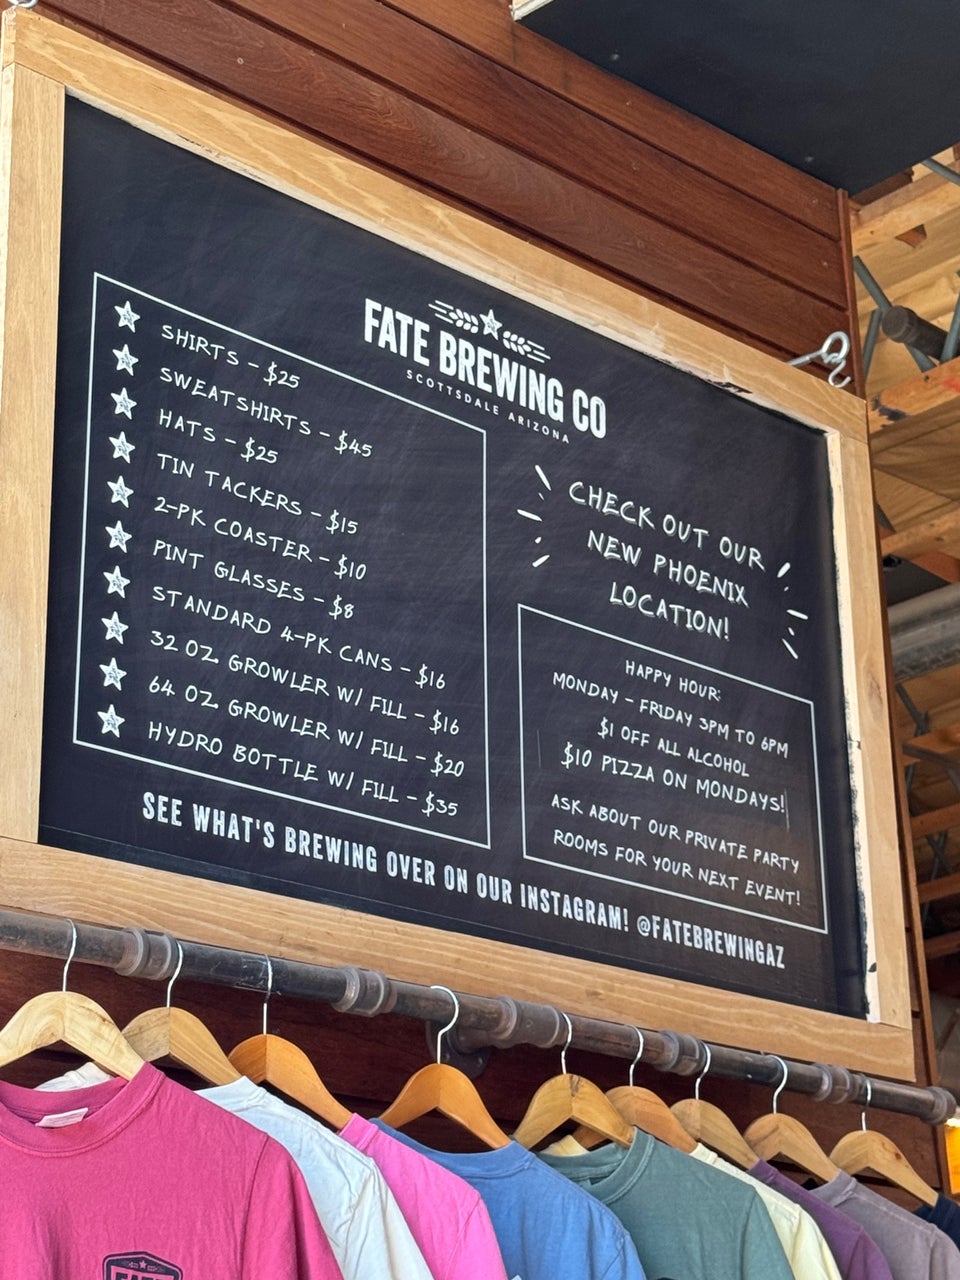 FATE BREWING CO
SCOTTSDALE ARIZONA
SHIRTS – $25
SWEATSHIRTS – $45
HATS – $25
TIN TACKERS – $15
2-PK COASTER – $10
PINT GLASSES – $8
STANDARD 4-PK CANS – $16
32 OZ. GROWLER W/ FILL – $16
64 OZ. GROWLER W/ FILL – $20
HYDRO BOTTLE W/ FILL – $35
CHECK OUT OUR
NEW PHOENIX
LOCATION!
HAPPY HOUR:
MONDAY – FRIDAY 3PM TO 6PM
$1 OFF ALL ALCOHOL
$10 PIZZA ON MONDAYS!
ASK ABOUT OUR PRIVATE PARTY
ROOMS FOR YOUR NEXT EVENT!
SEE WHAT'S BREWING OVER ON OUR INSTAGRAM! @FATEBREWINGAZ
FATE